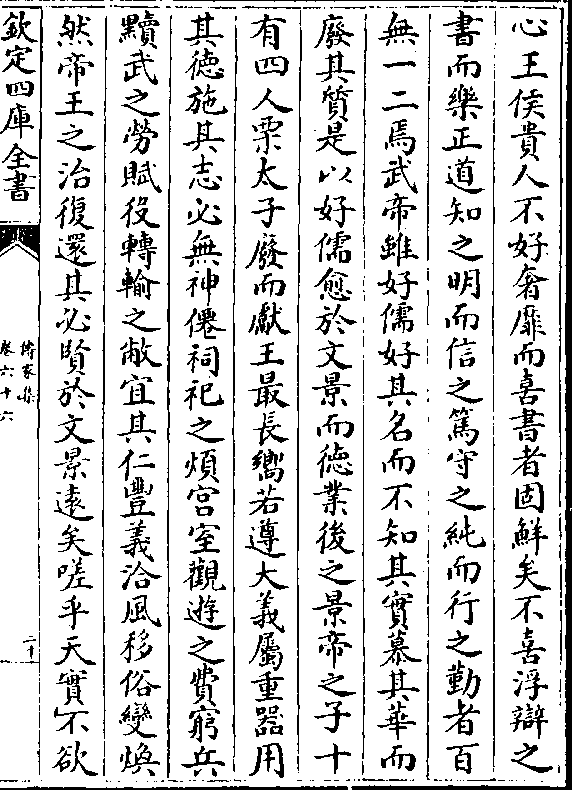 心王侯貴人不好奢靡而喜書者固鮮矣不喜浮辯之
書而樂正道知之明而信之篤守之純而行之勤者百
無一二焉武帝雖好儒好其名而不知其實慕其華而
廢其質是以好儒愈於文景而徳業後之景帝之子十
有四人栗太子廢而獻王最長嚮若遵大義屬重器用
其徳施其志必無神僊祠祀之煩宫室觀遊之費窮兵
黷武之勞賦役轉輸之敝宜其仁豐義洽風移俗變煥
然帝王之治復還其必賢於文景遠矣嗟乎天實不欲
欽定四庫全書
傳家集
卷六十六
二十